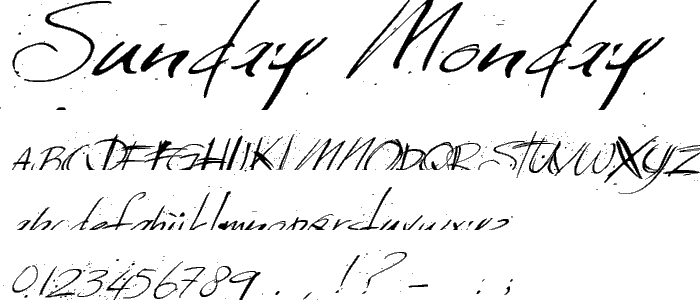 Sunday Monday
ABCDEFGHIJKLMNOPQRSTUVWXYZ
abcdefghijklmnopqrstuvwxyz
0123456789 . , ! ? - : ;